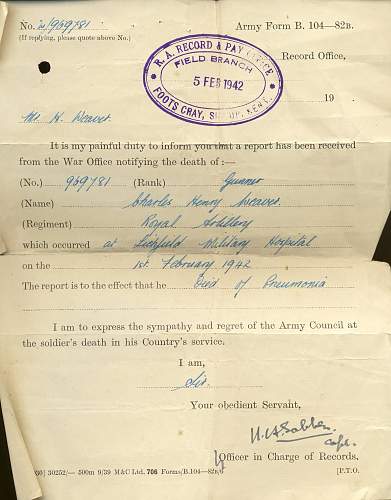 No. 2/969781 Army Form B. 104—82B.
(If replying, please quote above No.)
R. A. RECORD & PAY OFFICE
FIELD BRANCH
5 FEB 1942
FOOTS CRAY, SIDCUP, KENT.
Record Office,
19
Mr. H. Weaver
It is my painful duty to inform you that a report has been received
from the War Office notifying the death of :—
(No.) 969781 (Rank) Gunner
(Name) Charles Henry Weaver.
(Regiment) Royal Artillery
which occurred at Lichfield Military Hospital
on the 1st. February 1942
The report is to the effect that he Died of Pneumonia
I am to express the sympathy and regret of the Army Council at
the soldier's death in his Country's service.
I am,
Sir.
Your obedient Servant,
Capt.
Officer in Charge of Records.
30252/— 500m 9/39 M&C Ltd. 706 Forms/B.104—82B/6 [P.T.O.